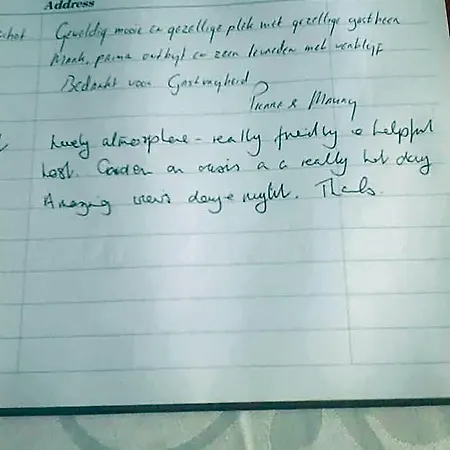 Address
chot Geweldig mooie en gezellige plek met gezellige gastheer
Mark, prima ontbijt en zeer tevreden met verblijf
Bedankt voor Gastvrijheid
&
Lovely atmosphere - really friendly & helpful
host. Garden an oasis on a really hot day
Amazing views day & night. Thanks.